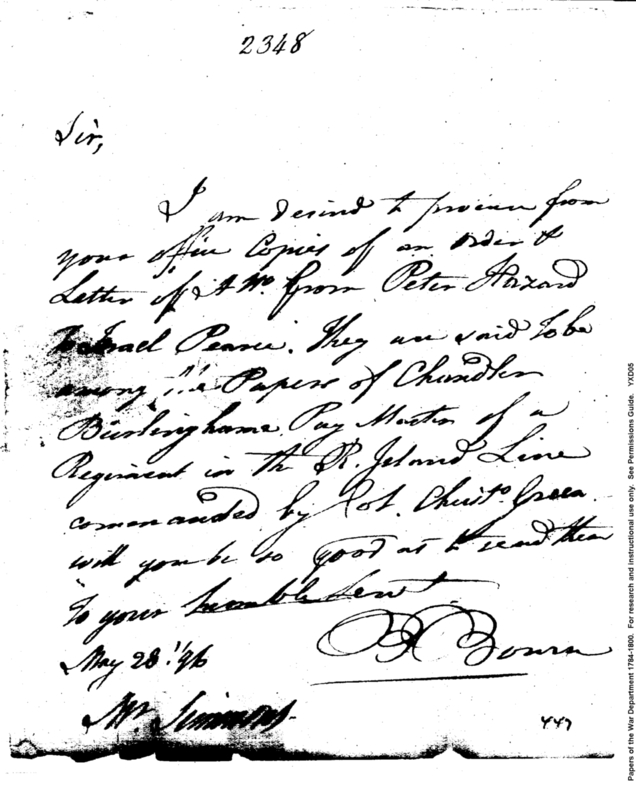 2348
Sir,
I am desired to procure from
your office Copies of an order &
Letter of Atty. from Peter Hazard
To Israel Pearce. They are said to be
among the Papers of Chandler
Burlinghame Pay Master of a
Regiment in the R. Island Line
commanded by Col. Christo. Green.
will you be so good as to send them
To your humble Servt
B Bourn
May 28th. 96
Mr. Simmons.
447
Papers of the War Department 1784-1800. For research and instructional use only. See Permissions Guide. YXD05